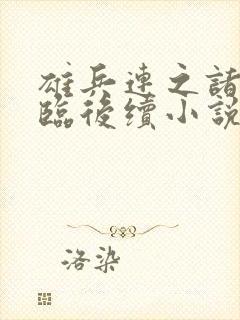 雄兵連之諸
臨後續小說
洛染